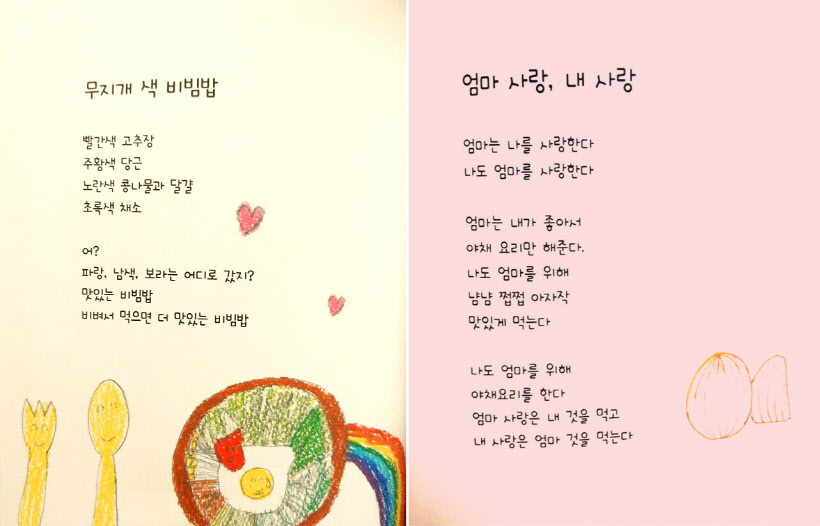 무지개 색 비빔밥
빨간색 고추장
주황색 당근
노란색 콩나물과 달걀
초록색 채소
어?
파랑, 남색, 보라는 어디로 갔지?
맛있는 비빔밥
비벼서 먹으면 더 맛있는 비빔밥
엄마 사랑, 내 사랑
엄마는 나를 사랑한다
나도 엄마를 사랑한다
엄마는 내가 좋아서
야채 요리만 해준다.
나도 엄마를 위해
냠냠 쩝쩝 아자작
맛있게 먹는다
나도 엄마를 위해
야채요리를 한다
엄마 사랑은 내 것을 먹고
내 사랑은 엄마 것을 먹는다